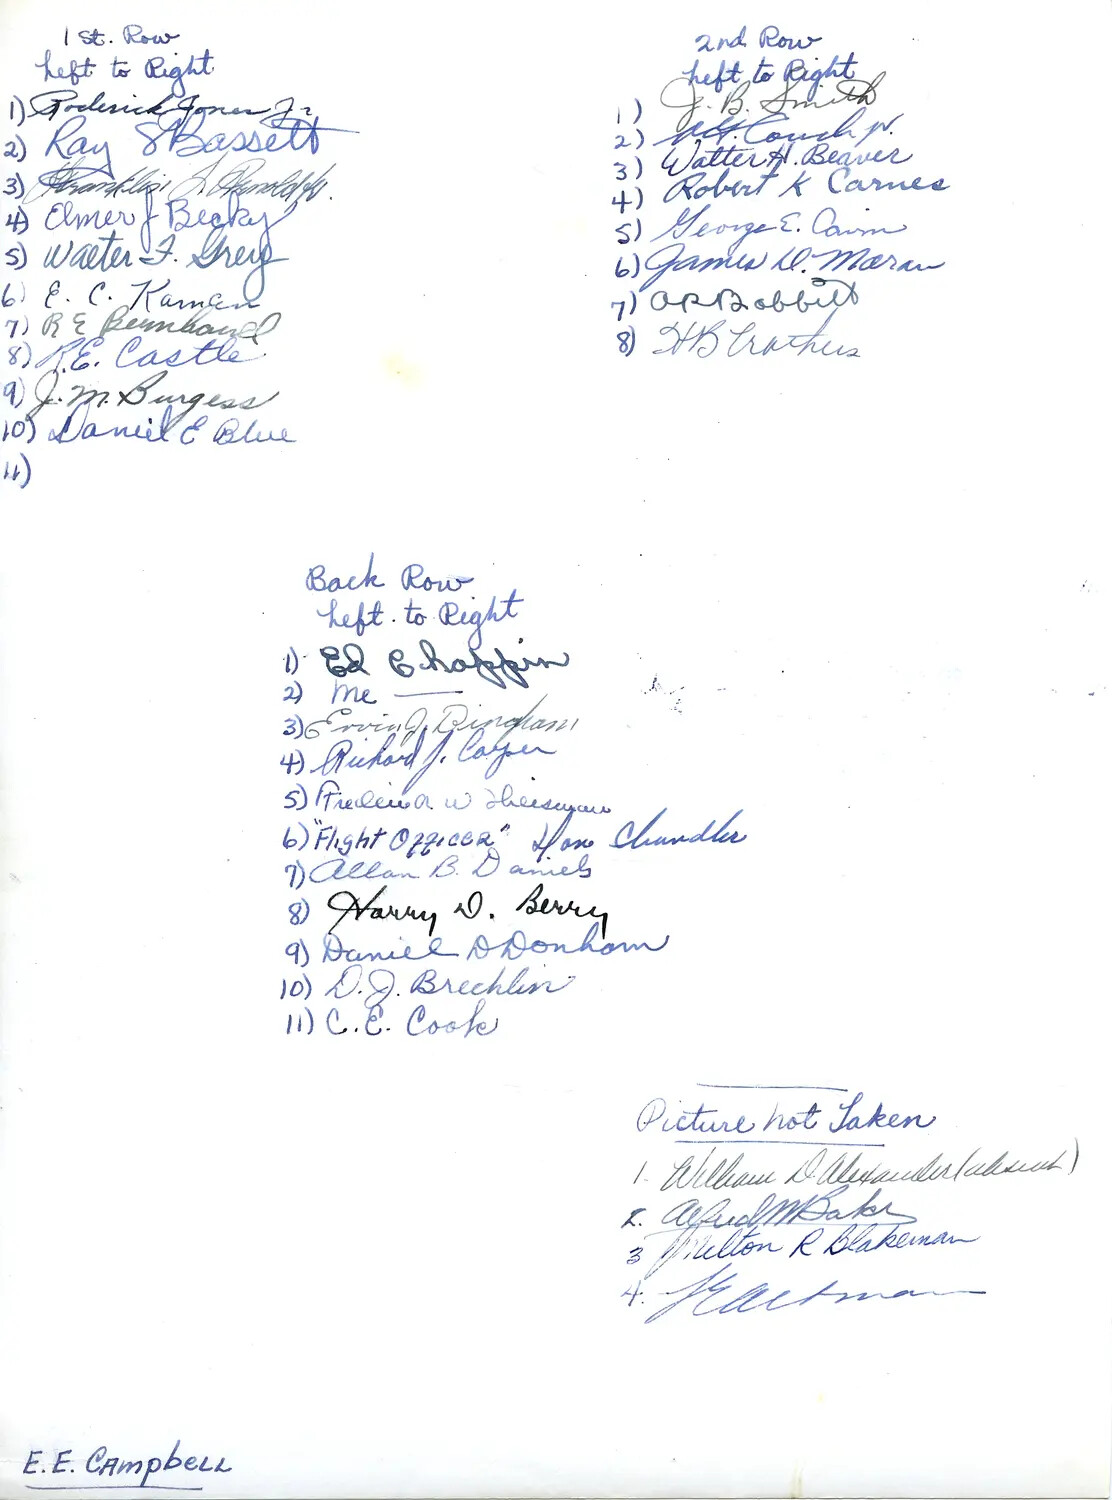 1st. Row
Left to Right
1) Roderick Jones Jr.
2) Ray S Bassett
3) Franklin L. Arnold Jr.
4) Elmer J Becky
5) Walter F. Greig
6) E. C. Kaman
7) R E Bernhard
8) R.E. Castle
9) J. M. Burgess
10) Daniel E Blue
11)
2nd Row
Left to Right
1) J. B. Smith
2) Couch Jr.
3) Walter H. Beaver
4) Robert K Carnes
5) George E. Cairn
6) James D. Moran
7) O R Bobbitt
8) H B Crothers
Back Row
Left to Right
1) Ed Choppin
2) Me
3) Ervin J. Bingham
4) Richard J. Casper
5) W
6) "Flight Officer" Chandler
7) Allan B. Daniels
8) Harry D. Berry
9) Daniel D Donham
10) D. J. Brechlin
11) C. E. Cook
Picture not Taken
1. William D. Alexander (absent)
2. Alfred M Baker
3 Milton R Blakeman
4. Altman
E.E. Campbell